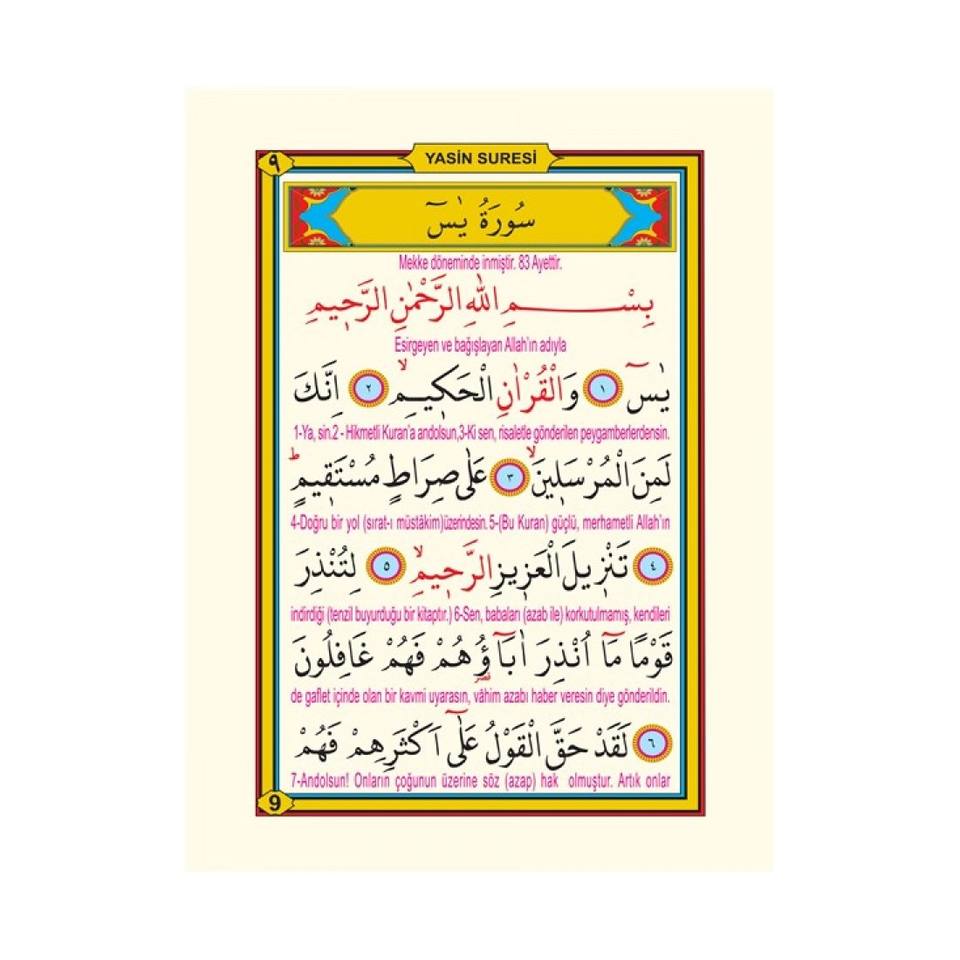 ٩
YASİN SURESİ
سُورَةُ يٰسٓ
Mekke döneminde inmiştir. 83 Ayettir.
بِسْمِ اللّٰهِ الرَّحْمٰنِ الرَّحٖيمِ
Esirgeyen ve bağışlayan Allah'ın adıyla
يٰسٓ ١ وَالْقُرْاٰنِ الْحَكٖيمِۙ ٢ اِنَّكَ
1-Ya, sin.2 - Hikmetli Kuran'a andolsun,3-Ki sen, risaletle gönderilen peygamberlerdensin.
لَمِنَ الْمُرْسَلٖينَۙ ٣ عَلٰى صِرَاطٍ مُسْتَقٖيمٍۜ
4-Doğru bir yol (sırat-ı müstâkim)üzerindesin. 5-(Bu Kuran) güçlü, merhametli Allah'ın
٤ تَنْزٖيلَ الْعَزٖيزِ الرَّحٖيمِۙ ٥ لِتُنْذِرَ
indirdiği (tenzil buyurduğu bir kitaptır.) 6-Sen, babaları (azab ile) korkutulmamış, kendileri
قَوْمًا مَٓا اُنْذِرَ اٰبَٓاؤُ۬هُمْ فَهُمْ غَافِلُونَ
de gaflet içinde olan bir kavmi uyarasın, vâhim azabı haber veresin diye gönderildin.
٦ لَقَدْ حَقَّ الْقَوْلُ عَلٰٓى اَكْثَرِهِمْ فَهُمْ
7-Andolsun! Onların çoğunun üzerine söz (azap) hak olmuştur. Artık onlar
9